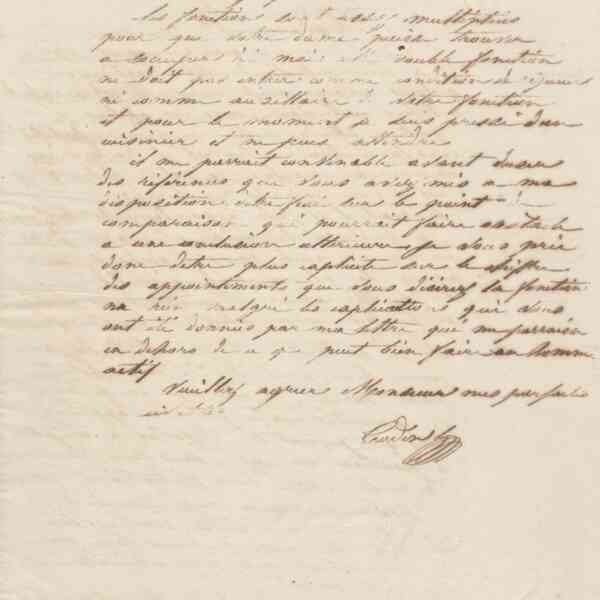 les fonction sont assez multipliés
pour que votre dame puisse trouver
a occuper mais double fonction
ne doit pas entrer comme condition
ni comme auxilliaire de votre fonction
et pour le moment je suis pressé d'un
cuisinier et ne puis attendre
il me parrait convenable avant d'user
des références que vous avez mis a ma
disposition d'être fixé sur le point de
comparaison qui pourrait faire obstacle
a une conclusion ultérieure je vous prie
donc d'etre plus explicite sur le chiffre
des appointements que vous désirez la fonction
malgré les explications qui vous
ont été données par ma lettre qui me parraisse
en dehors de ce que peut bien faire un homme
actif
Veuillez agréer Monsieur mes parfaites